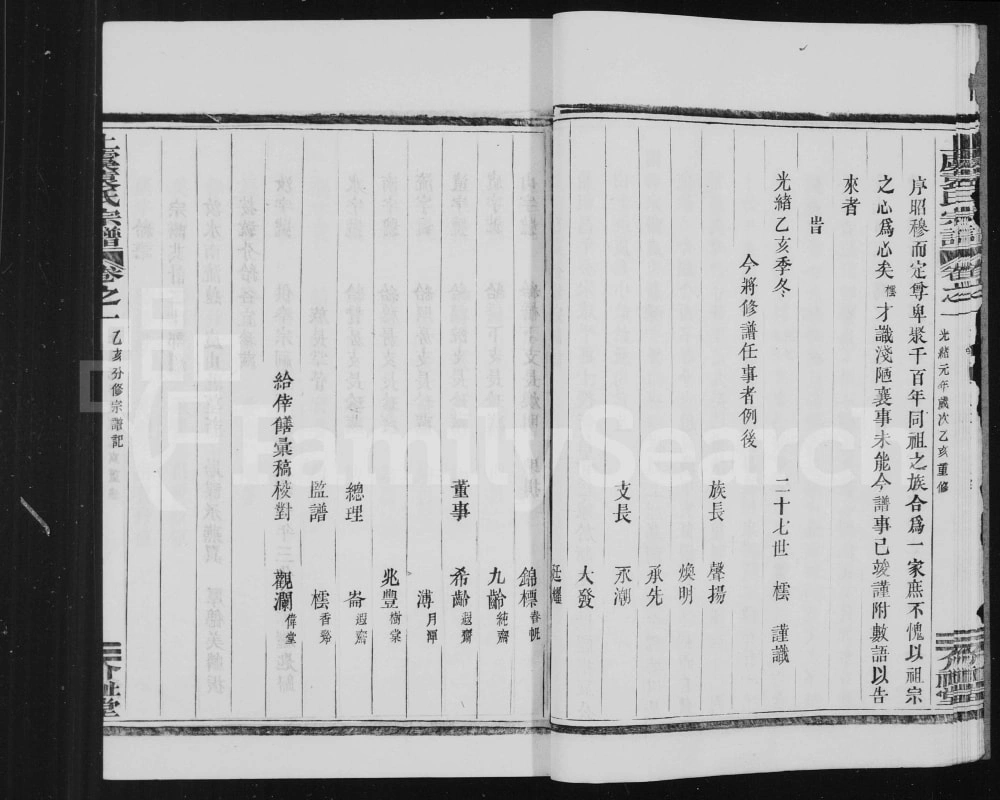 光緒元年歲次乙亥重修
序昭穆而定尊卑聚千百年同祖之族合爲一家庶不愧以祖宗
之心爲心矣橒才識淺陋襄事未能今譜事已竣謹附數語以告
來者
旹
光緒乙亥季冬 二十七世 橒 謹識
今將修譜任事者例後
族長 聲揚
煥明
承先
支長 永潮
大發
廷耀
錦標
九齡純齋
董事 希齡遐齋
溥月潭
兆豐樹棠
總理 崙遐齋
監譜 橒香谿
給俸饍彙稿校對 觀瀾偉堂
氏宗譜 卷之一 乙亥分修宗譜記
FamilySearch